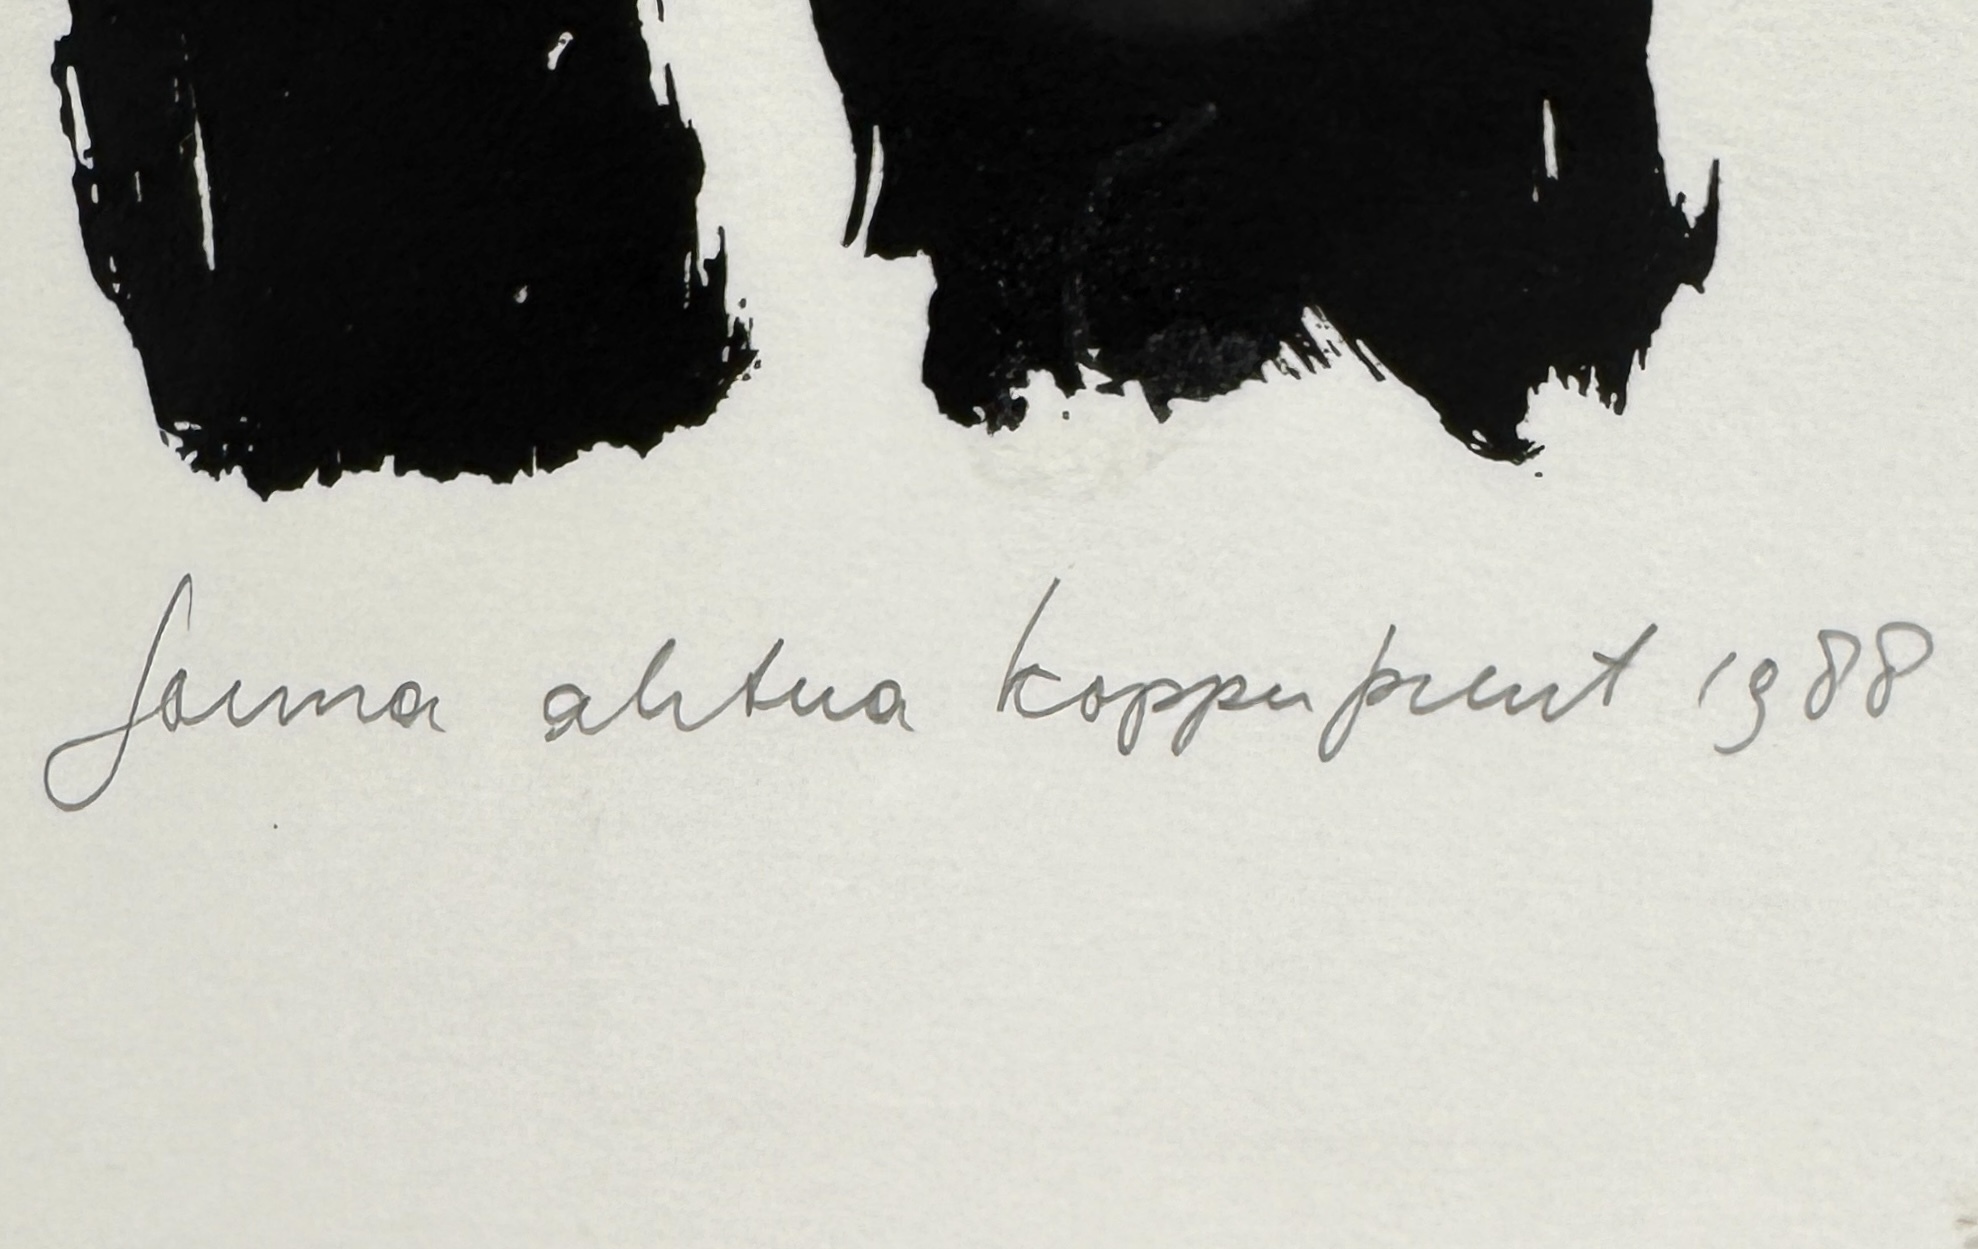 forma ahtua koppuprent 1988